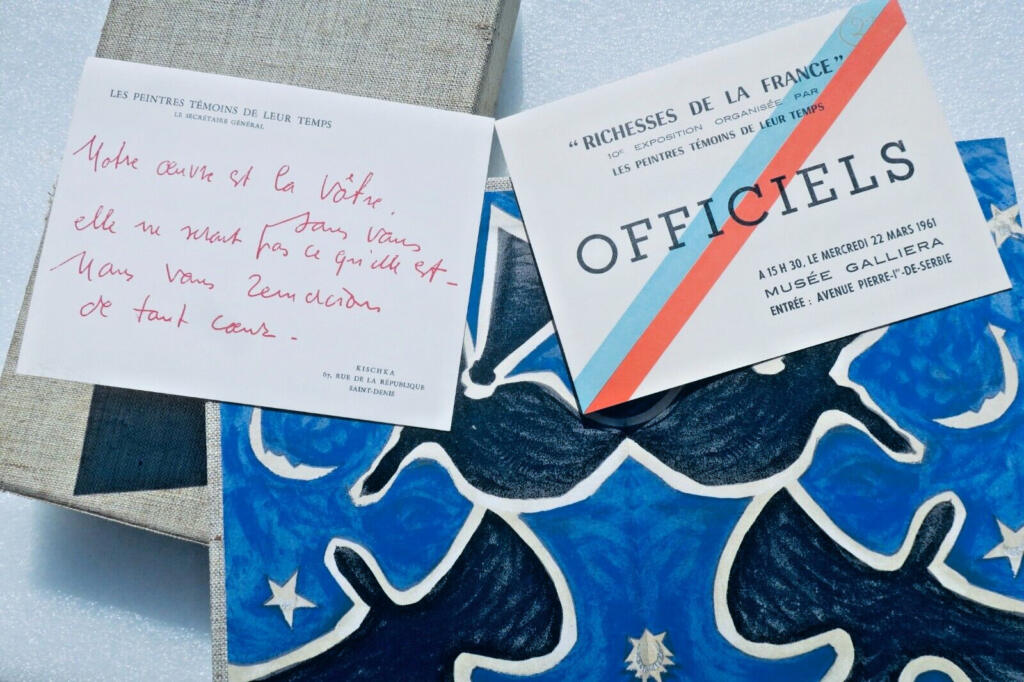 LES PEINTRES TÉMOINS DE LEUR TEMPS
LE SECRÉTAIRE GÉNÉRAL
Notre œuvre est la vôtre,
sans vous
elle ne serait pas ce qu'elle est -
Nous vous remercions
de tout cœur -
KISCHKA
67, RUE DE LA RÉPUBLIQUE
SAINT-DENIS
"RICHESSES DE LA FRANCE"
10e EXPOSITION ORGANISÉE PAR
LES PEINTRES TÉMOINS DE LEUR TEMPS
OFFICIELS
A 15 H 30, LE MERCREDI 22 MARS 1961
MUSÉE GALLIERA
ENTRÉE : AVENUE PIERRE-Ier-DE-SERBIE